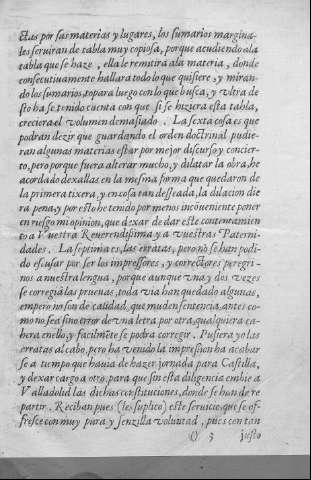 ctas por sus materias y lugares, los sumarios margina-
les seruiran de tabla muy copiosa, porque acudiendo ala
tabla que se haze, ella le remitirá ala materia, donde
consecutiuamente hallara todo lo que quisiere, y miran-
do los sumarios, topara luego con lo que busca, y vltra de
sto ha se tenido cuenta con que si se hiziera esta tabla,
creciera el volumen demasiado. La sexta cosa es que
podran dezir que guardando el orden doctrinal pudie-
ran algunas materias estar por mejor discurso y concier-
to, pero porque fuera alterar mucho, y dilatar la obra, he
acordado dexallas en la mesma forma que quedaron de
la primera tixera, y en cosa tan desseada, la dilacion die
ra pena, y por esto he tenido por menos incōueniente poner
en riesgo mi opinion, que dexar de dar este contentamien
to a Vuestra Reuerendissima y a vuestras Paterni-
dades. La septima es, las erratas, pero no se han podi-
do escusar por ser los impressores, y correctores peregri-
nos a nuestra lengua, porque aunque vna y dos vezes
se corregiã las prueuas, toda via han quedado algunas,
empero no son de calidad, que muden sentencia, antes co-
mo no sea sino error de vna letra por otra, qualquiera ca-
hera enello, y facilmēte se podra corregir. Pusiera yo las
erratas al cabo, pero ha venido la impression ha acabar
se a tiempo que hauia de hazer jornada para Castilla,
y dexar cargo a otro, para que sin esta diligencia embie a
Valladolid las dichas constituciones, donde se han de re
partir. Reciban pues (les suplico) este seruicio, que se of-
fresce con muy pura y senzilla voluntad, pues con tan
3 justo